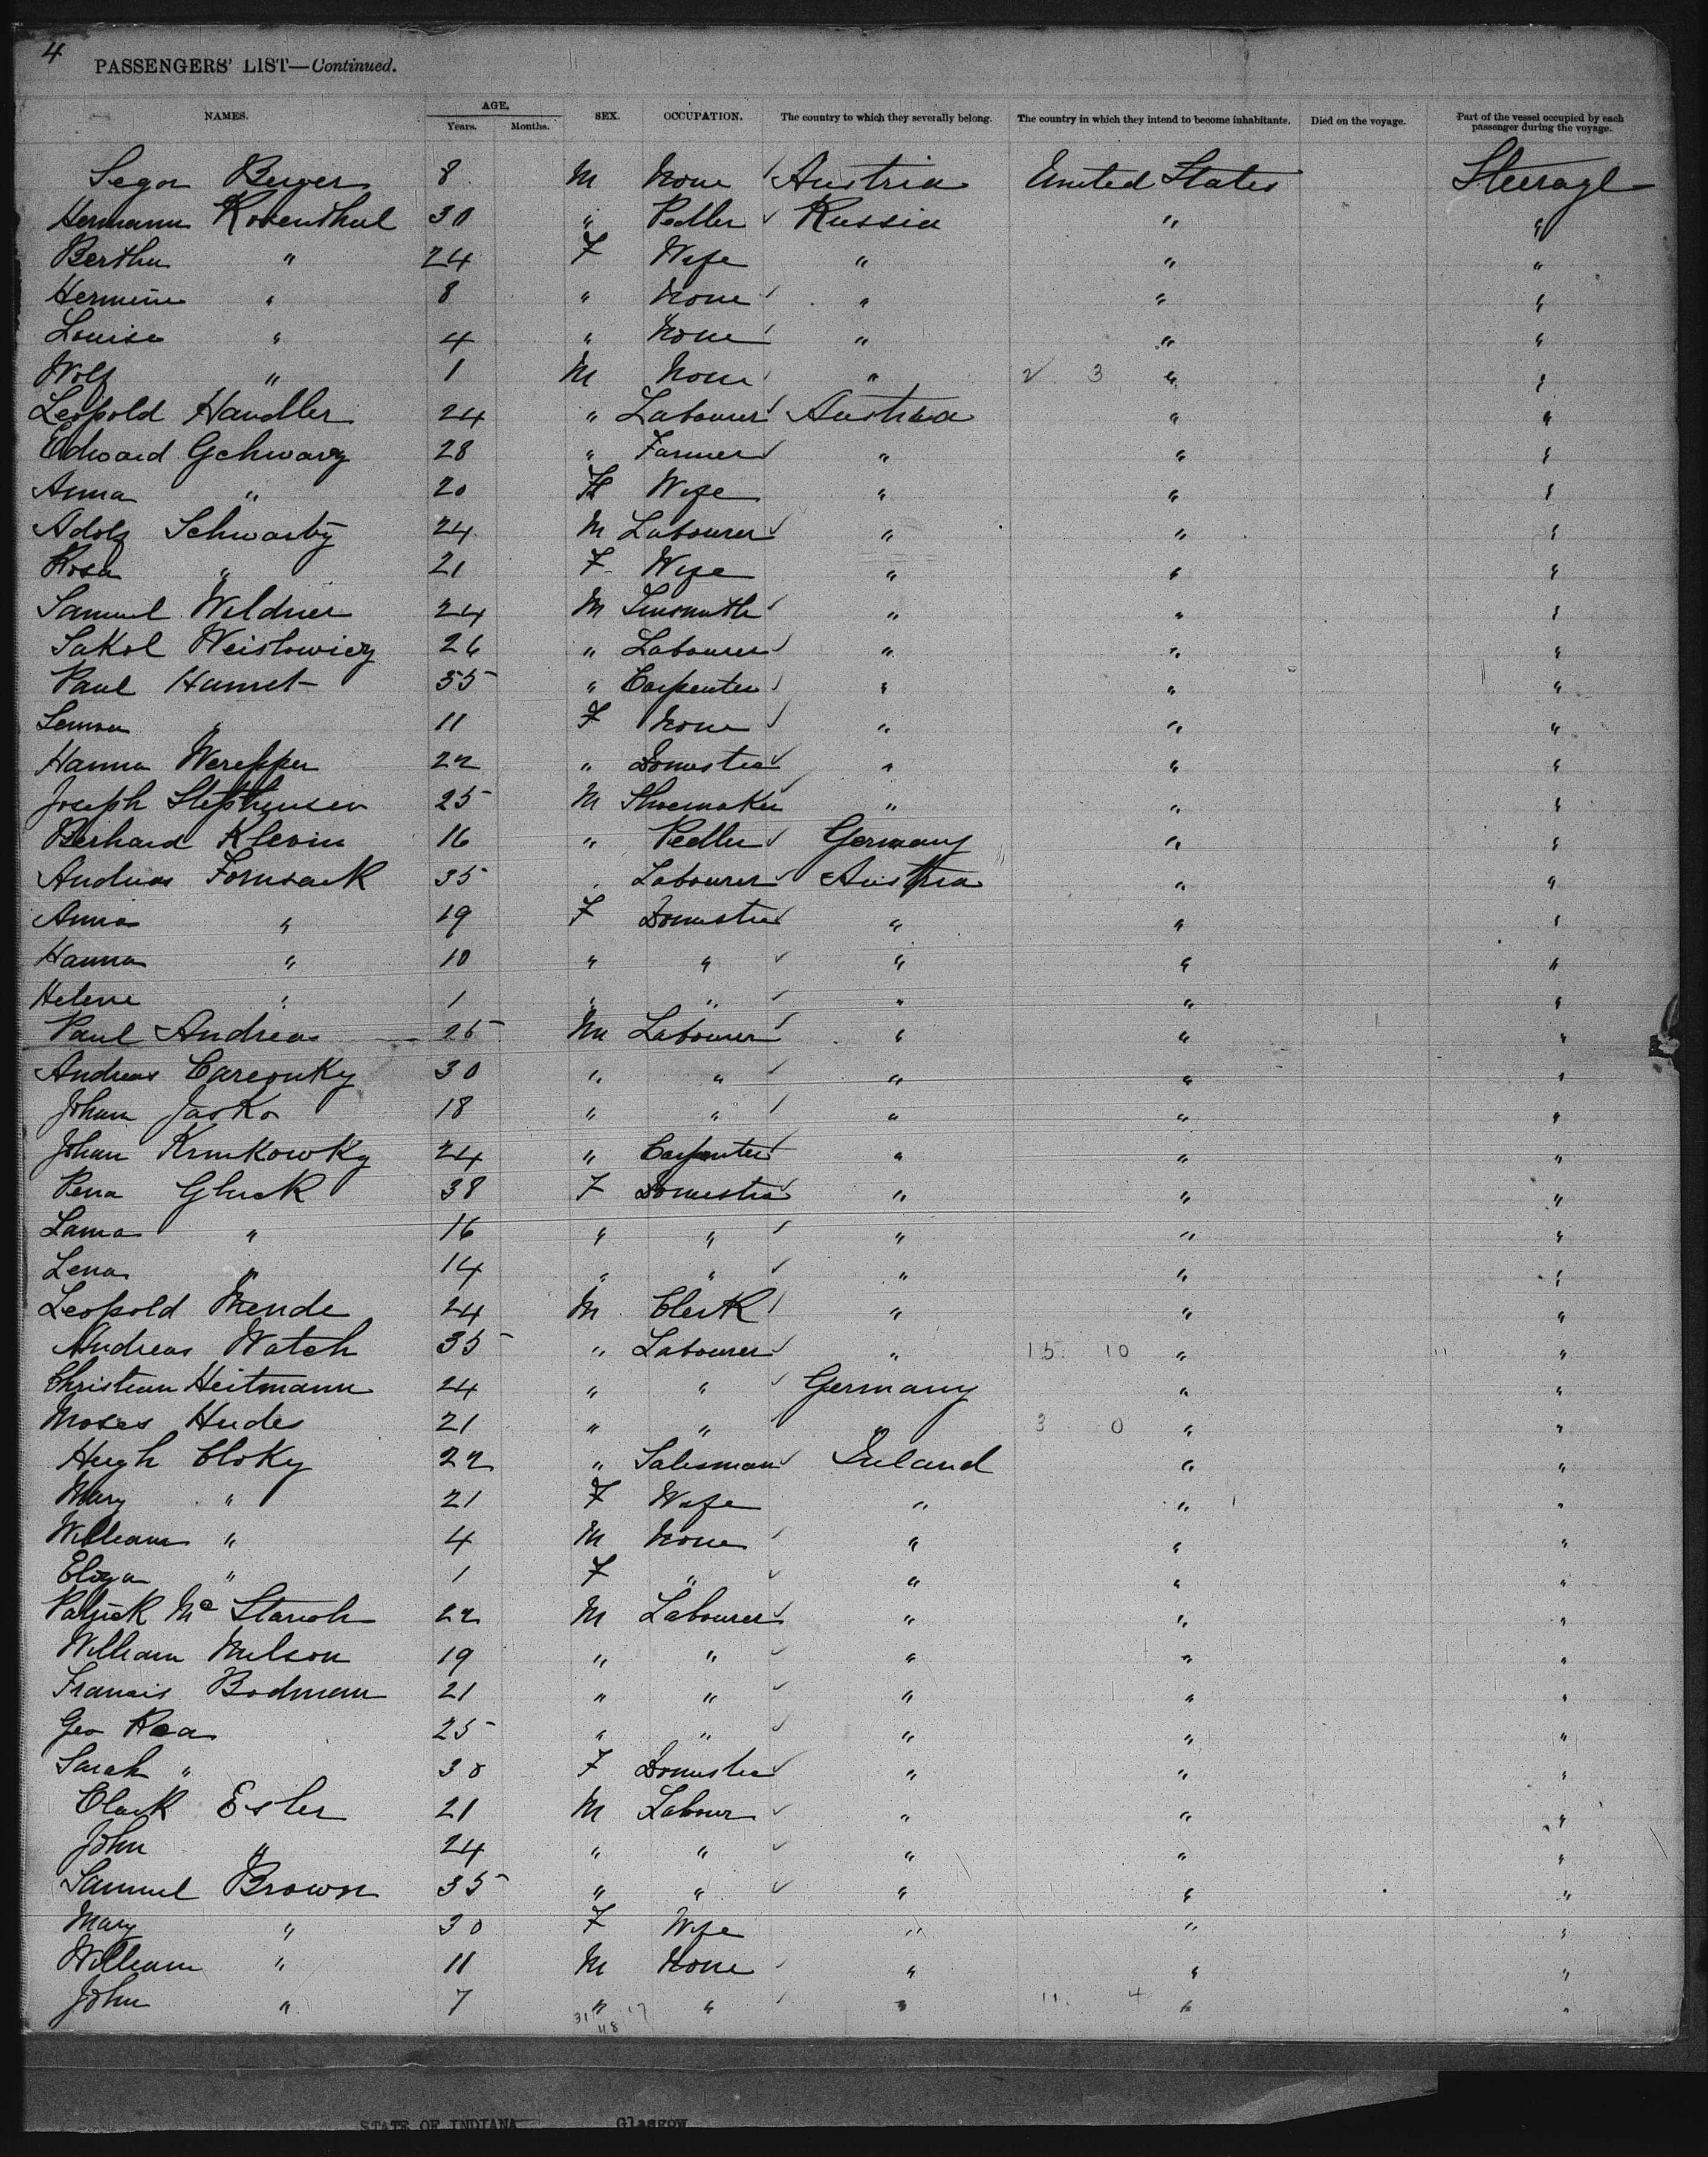 4
PASSENGERS' LIST—Continued.
NAMES. AGE. Years. Months. SEX. OCCUPATION. The country to which they severally belong. The country in which they intend to become inhabitants. Died on the voyage. Part of the vessel occupied by each passenger during the voyage.
8 M None Austria United States Steerage
Hermann Rosenthal 30 " Pedler Russia " "
Bertha " 24 F Wife " " "
Hermine " 8 " None " " "
Louise " 4 " None " " "
Wolf " 1 M None " 2 3 " "
Leopold Handler 24 " Labourer Austria " "
Edward Gchwarz 28 " Farmer " " "
Anna " 20 F Wife " " "
Adolf 24 M Labourer " " "
Rosa " 21 F Wife " " "
Samuel Weldner 24 M Tinsmith " " "
26 " Labourer " " "
Paul 55 " Carpenter " " "
" 11 F None " " "
Hanna 22 " Domestic " " "
Joseph 25 M Shoemaker " " "
Berhard Klevin 16 " Pedler Germany " "
Andreas Fornsack 35 " Labourer Austria " "
Anna " 19 F Domestic " " "
Hanna " 10 " " " " "
Helene " 1 " " " " "
Paul Andreas 25 M Labourer " " "
Andreas 30 " " " " "
Johan Jasko 18 " " " " "
Johan 24 " Carpenter " " "
Gluck 38 F Domestic " " "
" 16 " " " " "
Lena " 14 " " " " "
Leopold Mende 24 M Clerk " " "
Andreas Watch 35 " Labourer " 15 10 " "
Christian Heitmann 24 " " Germany " "
Moses Hudes 21 " " " 3 0 " "
Hugh Cloky 22 " Salesman Ireland " "
Mary " 21 F Wife " " "
William " 4 M None " " "
Eliza " 1 F " " " "
Patrick Mc 22 M Labourer " " "
William 19 " " " " "
Francis Bodman 21 " " " " "
Geo Rea 25 " " " " "
Sarah " 30 F Domestic " " "
Clark Esler 21 M Labour " " "
John " 24 " " " " "
Samuel Brown 35 " " " " "
Mary " 30 F Wife " " "
William " 11 M None " " "
John " 7 " " " 11 4 " "
31 17
48
STATE OF INDIANA Glasgow